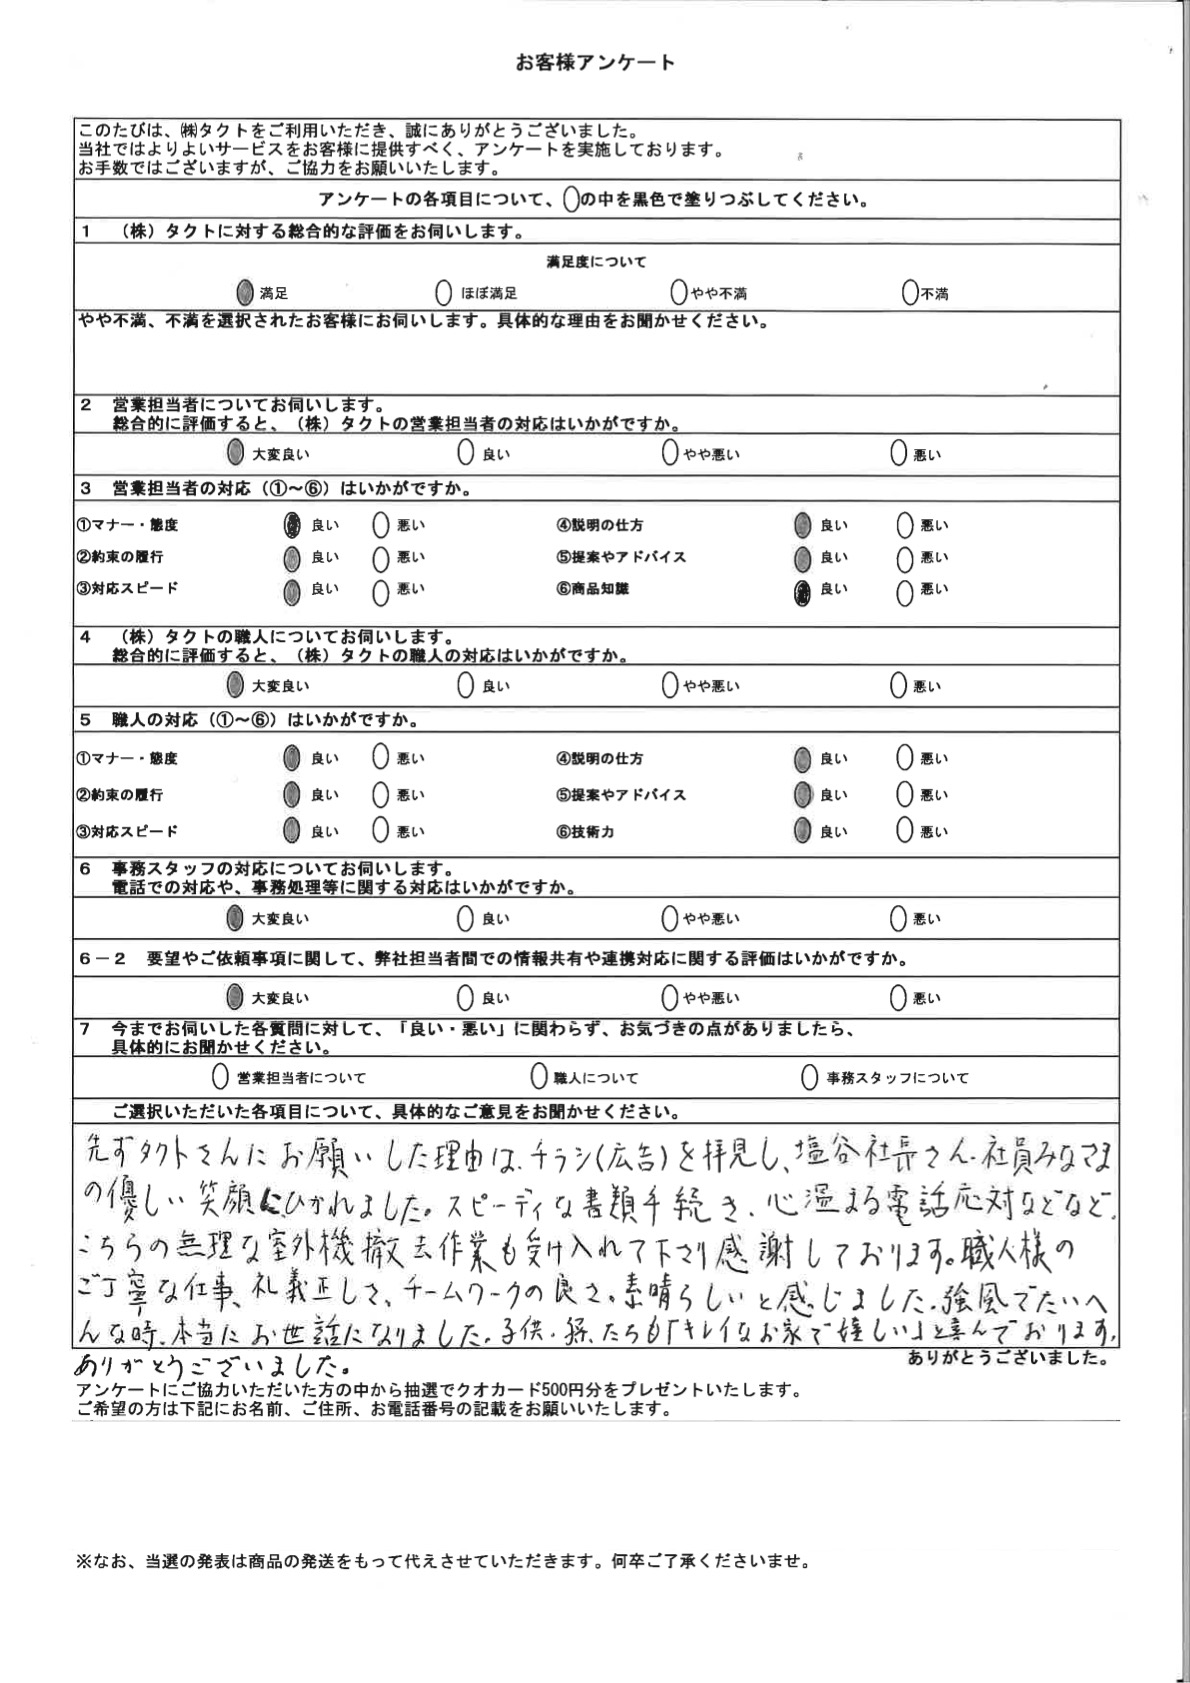 お客様アンケート
このたびは、㈱タクトをご利用いただき、誠にありがとうございました。
当社ではよりよいサービスをお客様に提供すべく、アンケートを実施しております。
お手数ではございますが、ご協力をお願いいたします。
アンケートの各項目について、○の中を黒色で塗りつぶしてください。
1 （株）タクトに対する総合的な評価をお伺いします。
満足度について
満足 ほぼ満足 やや不満 不満
やや不満、不満を選択されたお客様にお伺いします。具体的な理由をお聞かせください。
2 営業担当者についてお伺いします。
総合的に評価すると、（株）タクトの営業担当者の対応はいかがですか。
大変良い 良い やや悪い 悪い
3 営業担当者の対応（①～⑥）はいかがですか。
①マナー・態度 良い 悪い ④説明の仕方 良い 悪い
②約束の履行 良い 悪い ⑤提案やアドバイス 良い 悪い
③対応スピード 良い 悪い ⑥商品知識 良い 悪い
4 （株）タクトの職人についてお伺いします。
総合的に評価すると、（株）タクトの職人の対応はいかがですか。
大変良い 良い やや悪い 悪い
5 職人の対応（①～⑥）はいかがですか。
①マナー・態度 良い 悪い ④説明の仕方 良い 悪い
②約束の履行 良い 悪い ⑤提案やアドバイス 良い 悪い
③対応スピード 良い 悪い ⑥技術力 良い 悪い
6 事務スタッフの対応についてお伺いします。
電話での対応や、事務処理等に関する対応はいかがですか。
大変良い 良い やや悪い 悪い
6－2 要望やご依頼事項に関して、弊社担当者間での情報共有や連携対応に関する評価はいかがですか。
大変良い 良い やや悪い 悪い
7 今までお伺いした各質問に対して、「良い・悪い」に関わらず、お気づきの点がありましたら、
具体的にお聞かせください。
営業担当者について 職人について 事務スタッフについて
ご選択いただいた各項目について、具体的なご意見をお聞かせください。
先ずタクトさんにお願いした理由は、チラシ(広告)を拝見し、塩谷社長さん、社員みなさま
の優しい笑顔にひかれました。スピーディな書類手続き、心温まる電話応対などなど、
こちらの無理な室外機撤去作業も受け入れて下さり感謝しております。職人様の
ご丁寧な仕事、礼義正しさ、チームワークの良さ。素晴らしいと感じました。強風でたいへ
んな時、本当にお世話になりました。子供・孫、たちも「キレイなお家で嬉しい」と喜んでおります。
ありがとうございました。
ありがとうございました。
アンケートにご協力いただいた方の中から抽選でクオカード500円分をプレゼントいたします。
ご希望の方は下記にお名前、ご住所、お電話番号の記載をお願いいたします。
※なお、当選の発表は商品の発送をもって代えさせていただきます。何卒ご了承くださいませ。